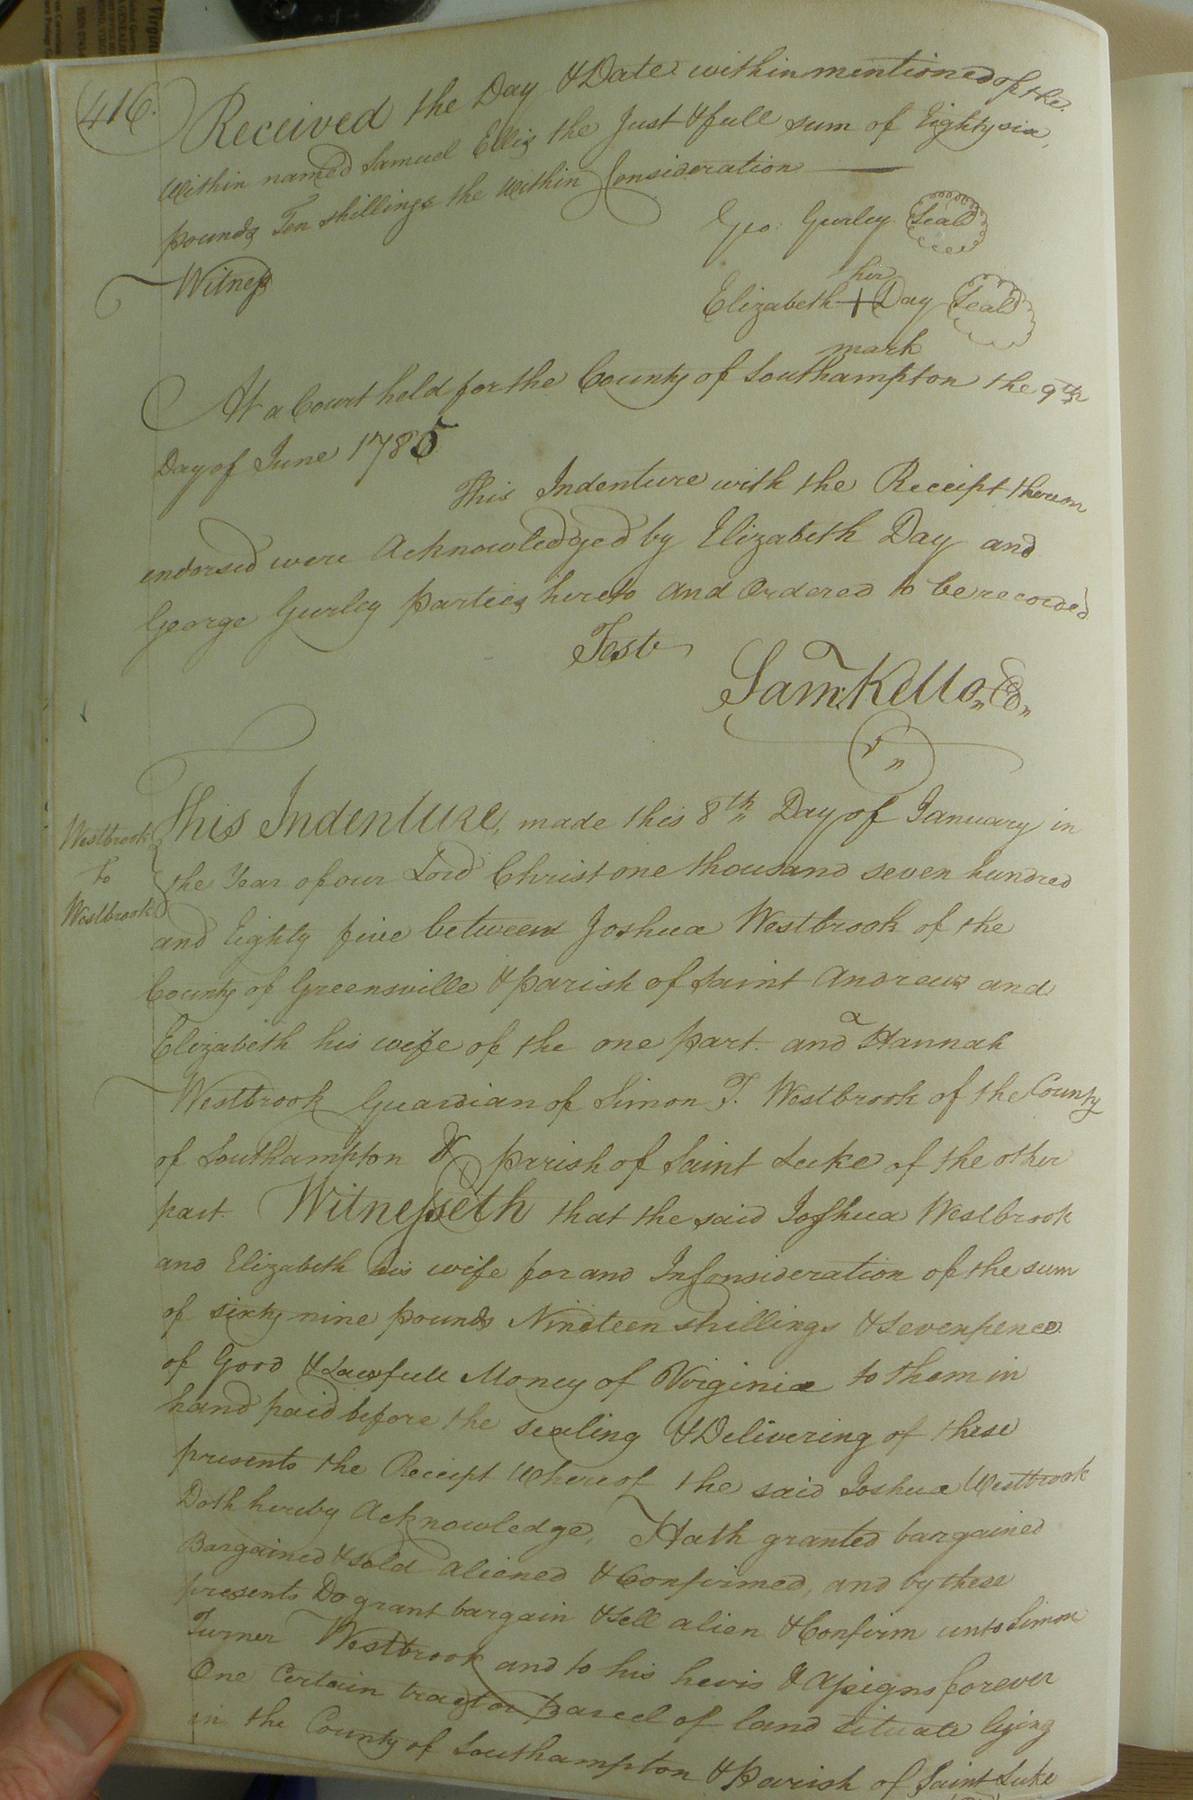 416.
Received the Day & Date within mentioned of the
Within named Samuel Ellis the Just & full sum of Eighty six
pounds Ten shillings the Within Consideration
Geo: Gurley Seal
Witness
her
Elizabeth + Day Seal
mark
At a Court held for the County of Southampton the 9th
Day of June 1785
This Indenture with the Receipt thereon
endorsed were Acknowledged by Elizabeth Day and
George Gurley parties hereto and Ordered to be recorded
Teste
Sam: Kello
This Indenture, made this 8th Day of January in
Westbrook
to
Westbrook
the Year of our Lord Christ one thousand seven hundred
and Eighty five between Joshua Westbrook of the
County of Greensville & parish of Saint Andrews and
Elizabeth his wife of the one part. and Hannah
Westbrook Guardian of Simon T. Westbrook of the County
of Southampton & parish of Saint Luke of the other
part. Witnesseth that the said Joshua Westbrook
and Elizabeth his wife for and In Consideration of the sum
of sixty nine pounds Nineteen shillings & sevenpence
of Good & Lawfull Money of Virginia to them in
hand paid before the sealing & Delivering of these
presents the Receipt Whereof the said Joshua Westbrook
Doth hereby Acknowledge, Hath granted bargained
Bargained & sold aliened & Confirmed, and by these
presents Do grant bargain & sell alien & Confirm unto Simon
Turner Westbrook and to his heris & assigns forever
One Certain tract or parcel of land situate lying
in the County of Southampton & Parish of Saint Luke